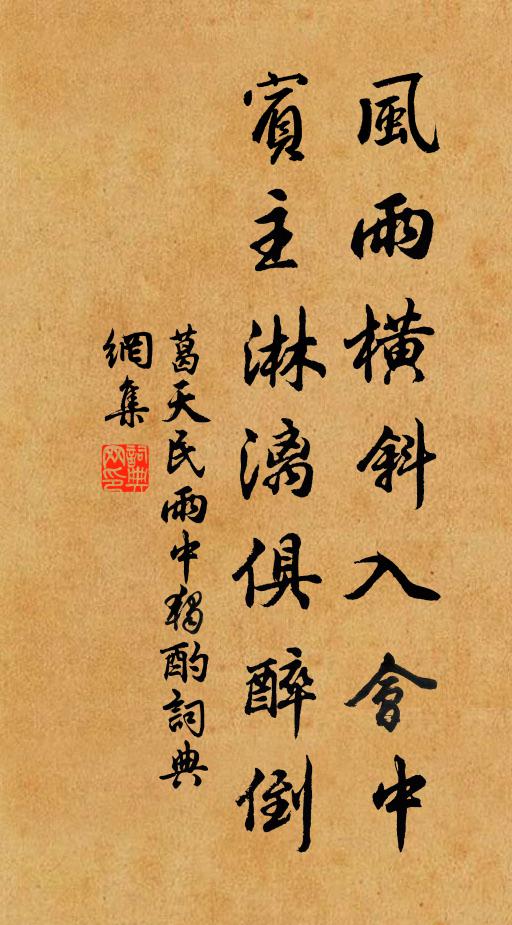 風雨橫斜入會中
賓主淋漓俱醉倒
葛天民雨中獨酌詞典
網集
詞典網印